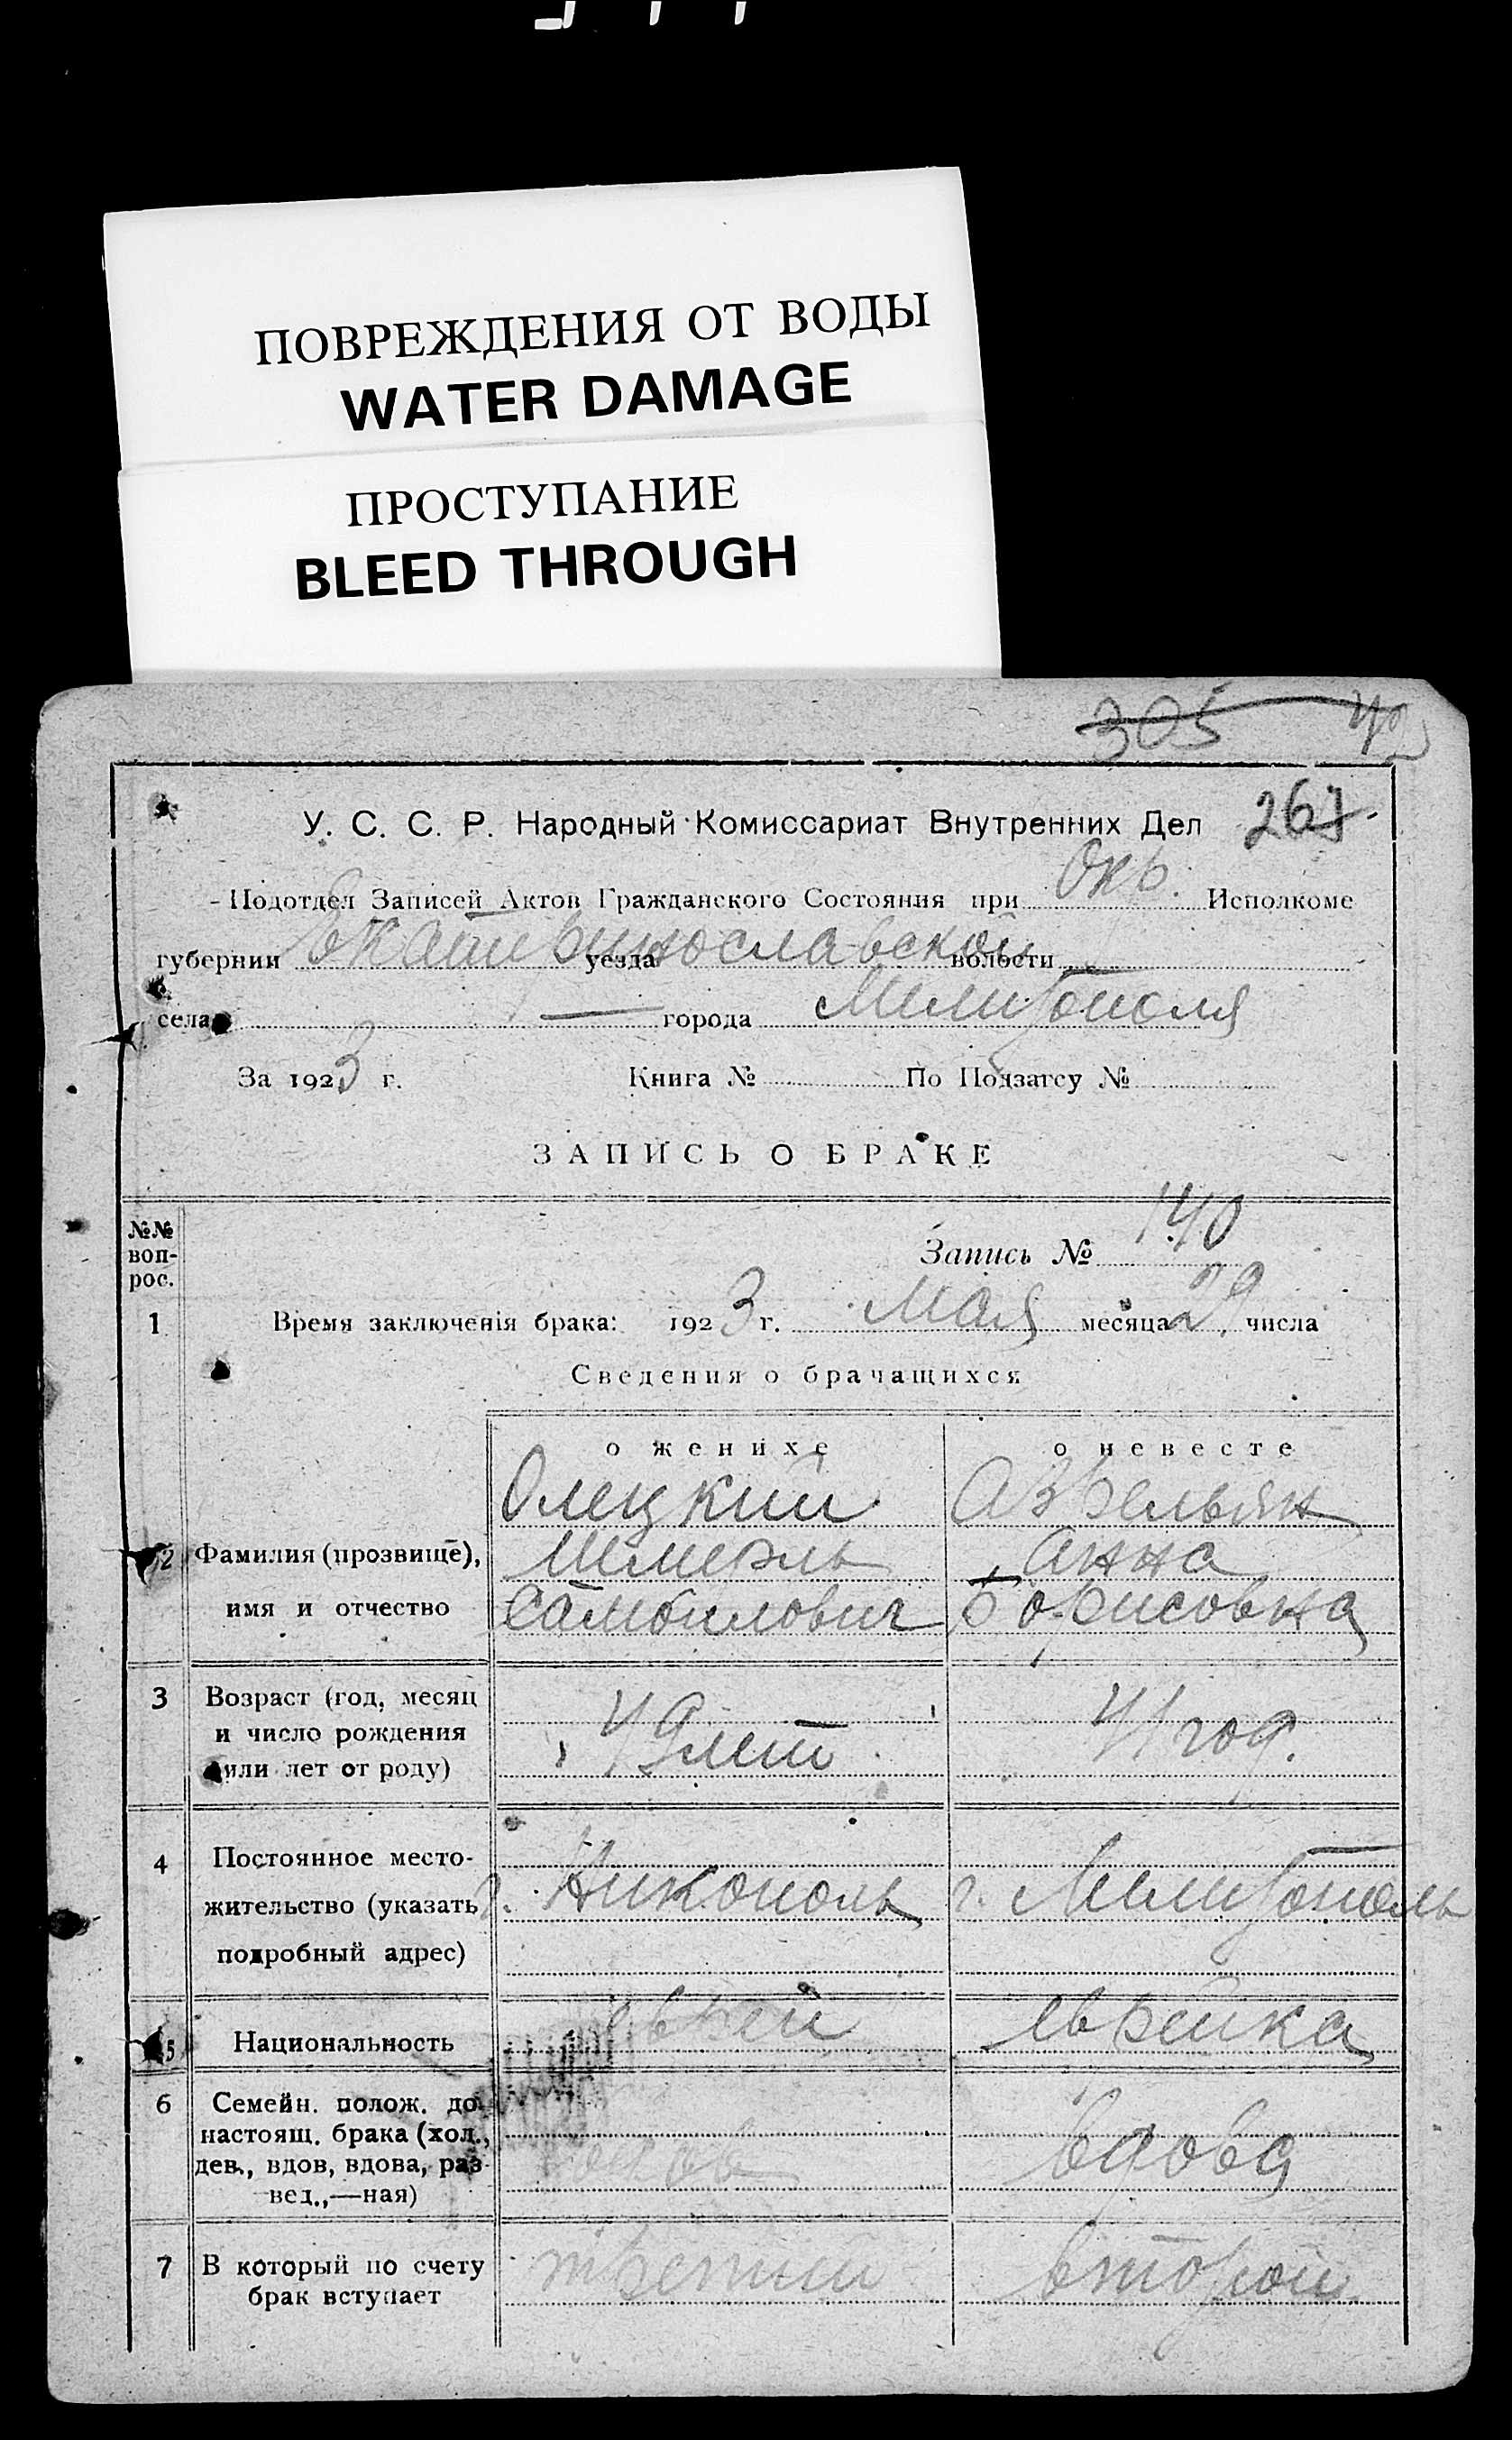 ПОВРЕЖДЕНИЯ ОТ ВОДЫ
WATER DAMAGE
ПРОСТУПАНИЕ
BLEED THROUGH
305
У. С. С. Р. Народный Комиссариат Внутренних Дел 267
Подотдел Записей Актов Гражданского Состояния при Окр. Исполкоме
губернии Екатеринославской уезда волости
села — города Мелитополя
За 1923 г. Книга № По Подзагсу №
ЗАПИСЬ О БРАКЕ
№№ воп-
рос.
Запись № 140
1 Время заключенія брака: 1923 г. Мая месяца 29 числа
Сведения о брачащихся
о женихе о невесте
Олецкий
2 Фамилия (прозвище), Шмерль Анна
имя и отчество Самойлович Борисовна
3 Возраст (год, месяц
и число рождения 49 лет 41 год.
или лет от роду)
4 Постоянное место-
жительство (указать г. Никополь г. Мелитополь
подробный адрес)
5 Национальность еврей еврейка
6 Семейн. полож. до
настоящ. брака (хол.,
дев., вдов, вдова, раз- вдов вдова
вед.,—ная)
7 В который по счету третий второй
брак вступает